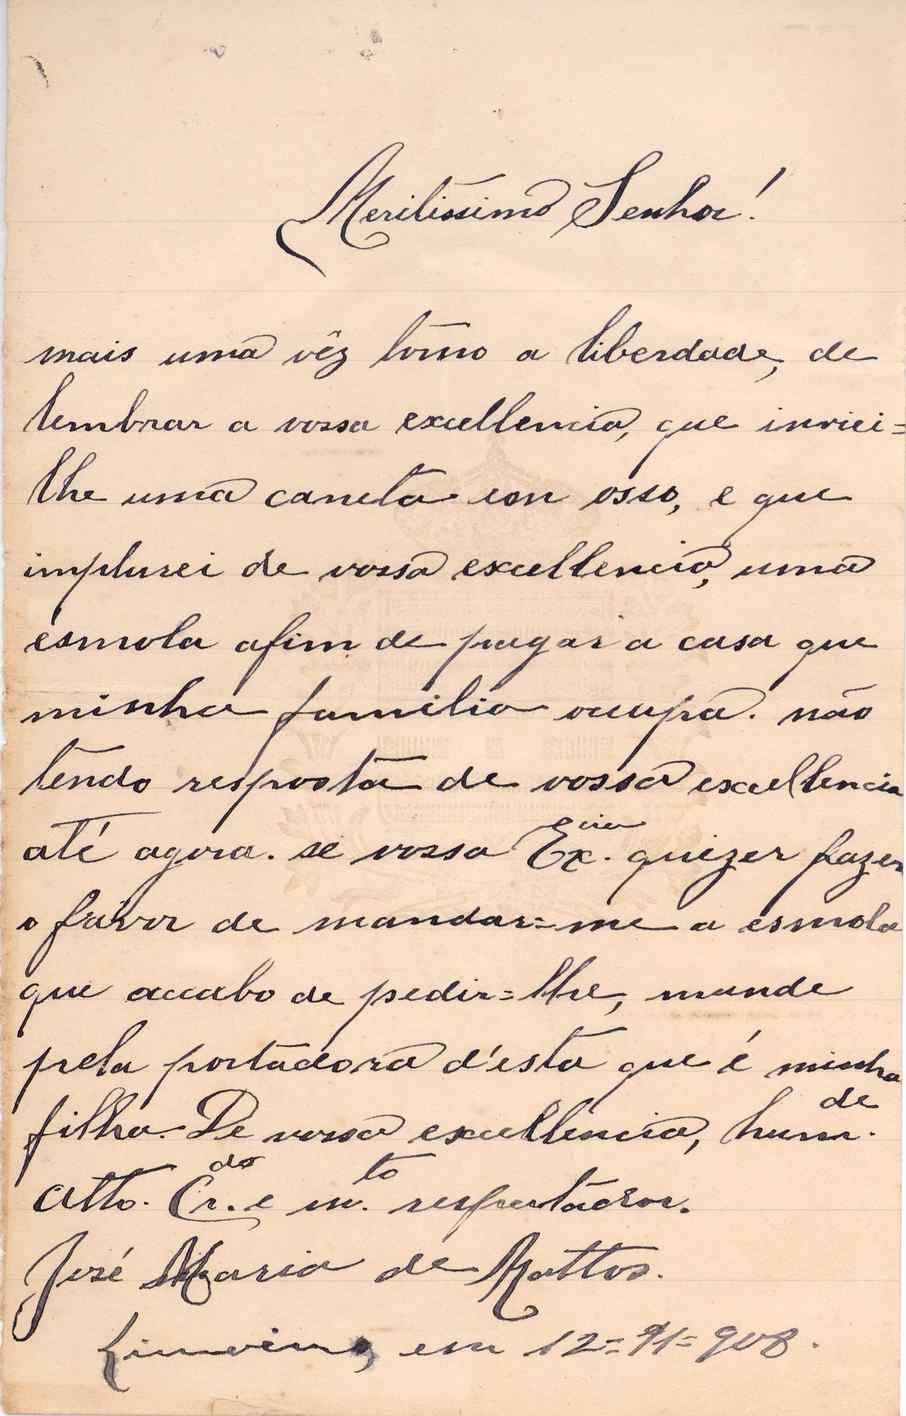 Meritissimo Senhor!
mais uma vêz tômo a liberdade, de
lembrar a vossa excellencia, que inviei=
lhe uma caneta em osso, e que
implorei de vossa excellencia, uma
esmola afim de pagar a casa que
minha familia ocupa. não
tendo resposta de vossa excellencia
até agora. se vossa Ex.cia quizer fazer
o favor de mandar=me a esmola
que accabo de pedir=lhe, mande
pela portadora d'esta que é minha
filha. De vossa excellencia, hum.de
Atto. Cr.do e m.to respeitador.
José Maria de Mattos.
Limoeiro, em 12= 11= 908.